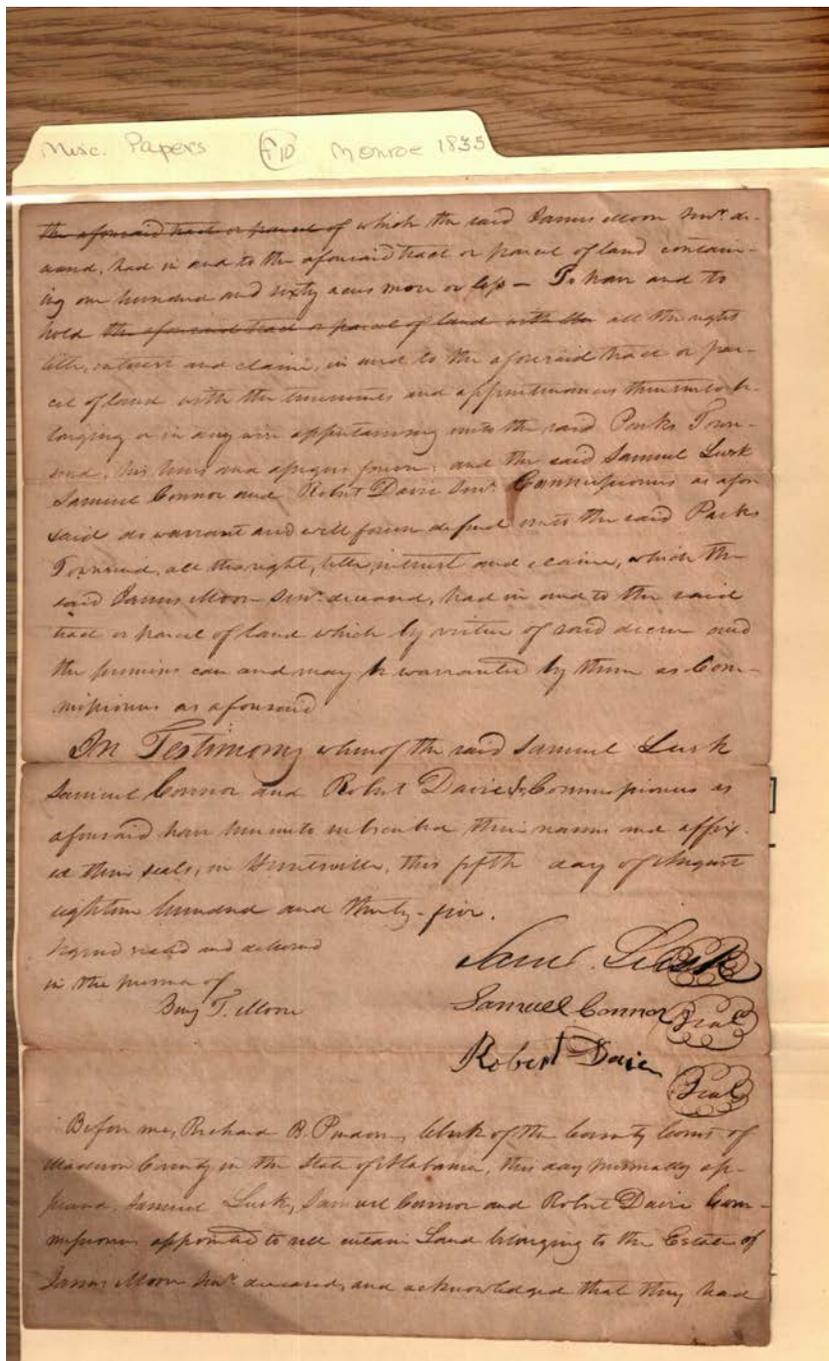 Misc. Papers F10 Monroe 1835
the aforesaid tract or parcel of which the said James Moon Senr. de-
ceased, had in and to the aforesaid tract or parcel of land contain-
ing one hundred and sixty acres more or less – To have and to
hold the aforesaid tract or parcel of land with the all the right
title, interest and claim, in and to the aforesaid tract or par-
cel of land with the tenements and appurtenances thereunto be-
longing or in any wise appertaining unto the said Parks Town-
send, his heirs and assigns forever; and the said Samuel Lusk
Samuel Connor and Robert Davie Senr. Commissioners as afore
said do warrant and will forever defend unto the said Parks
Townsend, all the right, title, interest and claim, which the
said James Moon Senr. deceased, had in and to the said
tract or parcel of land which by virtue of said decree and
the premises can and may be warranted by them as Com-
missioners as aforesaid
In Testimony whereof the said Samuel Lusk
Samuel Connor and Robert Davie Commissioners as
aforesaid have hereunto subscribed their names and affix-
ed their seals, in Huntsville, this fifth day of August
eighteen hundred and thirty-five.
Signed sealed and delivered
in the presence of
Benj T. Moore
Saml. Lusk Seal
Samuel Connor Seal
Robert Davie Seal
Before me, Richard B. Purdom, Clerk of the County Court of
Madison County in the State of Alabama, this day personally ap-
peared, Samuel Lusk, Samuel Connor and Robert Davie Com-
missioners appointed to sell certain Land belonging to the Estate of
James Moon Senr. deceased, and acknowledged that they had